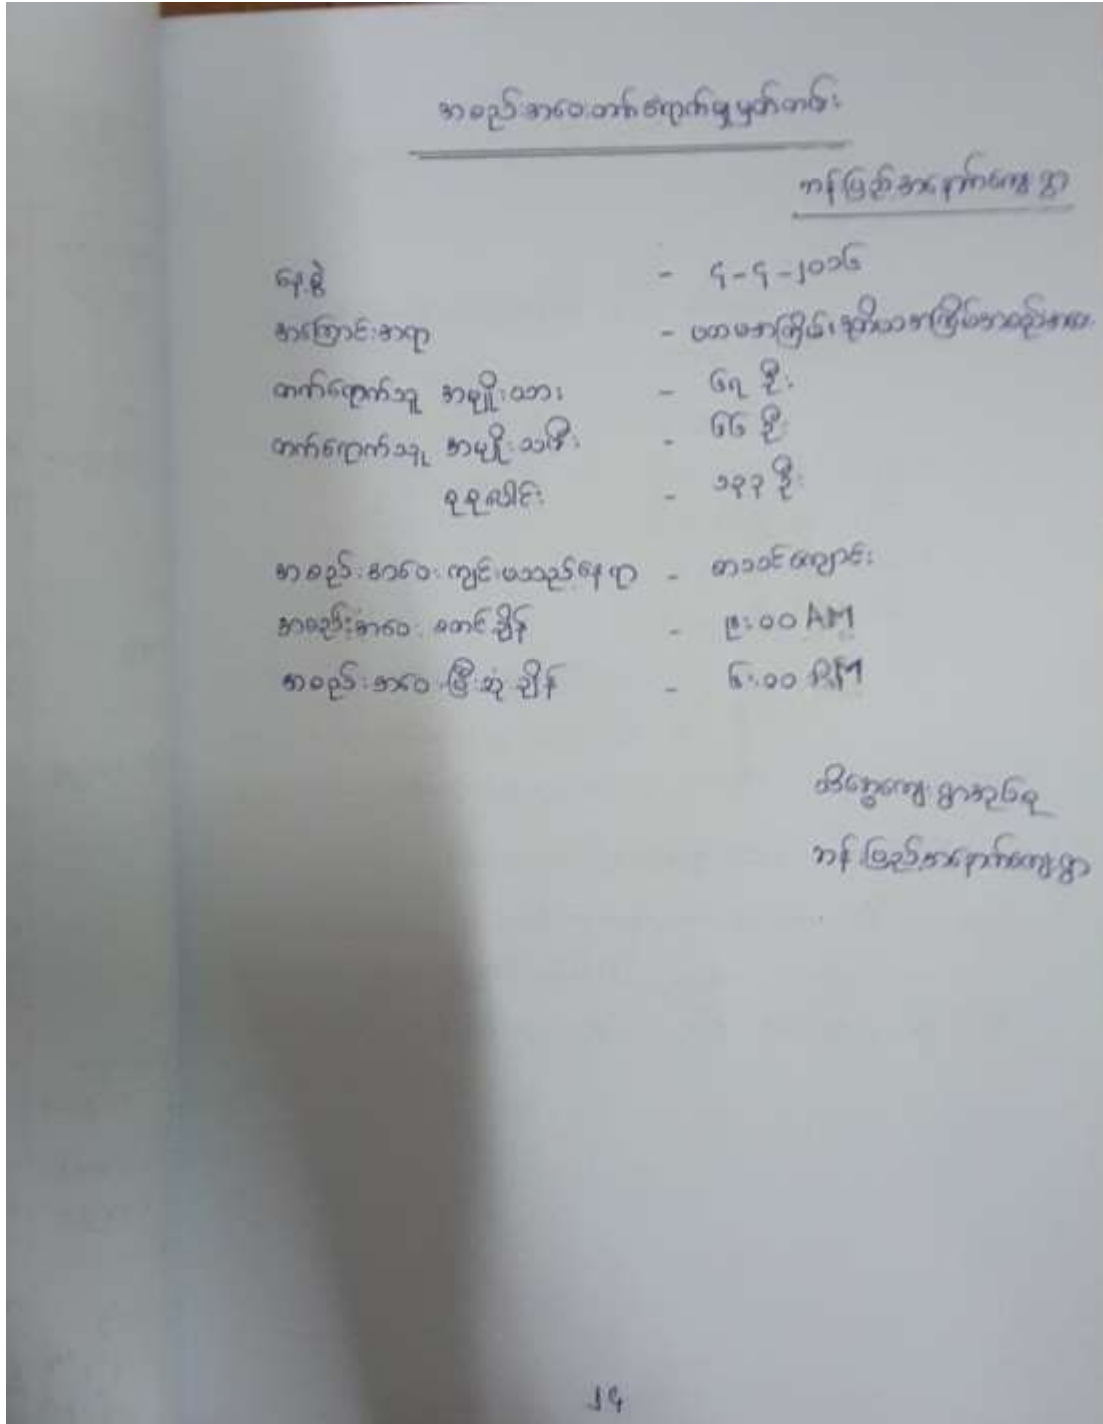 အစည်းအဝေးတက်ရောက်မှုမှတ်တမ်း
ကန်ပြည့်အနောက်ကျေးရွာ
နေ့စွဲ - ၄-၄-၂၀၁၆
အကြောင်းအရာ - ပထမအကြိမ်၊ ဒုတိယအကြိမ်အစည်းအဝေး
တက်ရောက်သူ အမျိုးသား - ၆၇ ဦး
တက်ရောက်သူ အမျိုးသမီး - ၆၆ ဦး
စုစုပေါင်း - ၁၃၃ ဦး
အစည်းအဝေး ကျင်းပသည့်နေရာ - စာသင်ကျောင်း
အစည်းအဝေး စတင်ချိန် - ၉:၀၀ AM
အစည်းအဝေး ပြီးဆုံးချိန် - ၆:၀၀ P.M
ကျေးရွာအုပ်စု
ကန်ပြည့်အနောက်ကျေးရွာ
၂၄